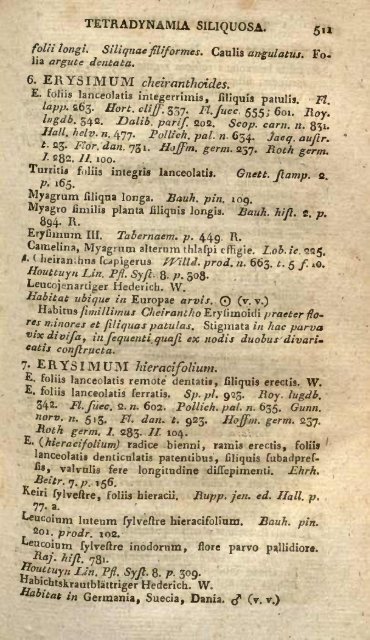 TETRADYNAMIA SILIQUOSA. 511
folii longi. Siliquae filiformes. Caulis angulatus. Fo-
lia argute dentata.
6. ERYSIMUM cheiranthoides.
E. foliis lanceolatis integerrimis, ſiliquis patulis. Fl.
lapp. 263. Hort. cliff. 337. Fl. ſuec. 555; 601. Roy.
lugdb. 342. Dalib. pariſ. 202. Scop. carn. n. 831.
Hall. helv. n. 477. Pollich. pal. n. 634. Jacq. auſtr.
t. 23. Flor. dan. 731. Hoffm. germ. 237. Roth germ.
I. 282. II. 100.
Turritis foliis integris lanceolatis. Gnett. ſtamp. 2.
p. 165.
Myagrum ſiliqua longa. Bauh. pin. 109.
Myagro ſimilis planta ſiliquis longis. Bauh. hiſt. 2. p.
894. R.
Eryſimum III. Tabernaem. p. 449. R.
Camelina, Myagrum alterum thlaſpi effigie. Lob. ic. 225.
Cheiranthus ſcapigerus Willd. prod. n. 663. t. 5 f. 10.
Houttuyn Lin. Pfl. Syſt. 8. p. 308.
Leucojenartiger Hederich. W.
Habitat ubique in Europae arvis. ☉ (v. v.)
Habitus ſimillimus Cheirantho Eryſimoidi praeter flo-
res minores et ſiliquas patulas. Stigmata in hac parva
vix diviſa, in ſequenti quaſi ex nodis duobus divari-
catis conſtructa.
7. ERYSIMUM hieracifolium.
E. foliis lanceolatis remote dentatis, ſiliquis erectis. W.
E. foliis lanceolatis ſerratis. Sp. pl. 923. Roy. lugdb.
342. Fl. ſuec. 2. n. 602. Pollich. pal. n. 635. Gunn.
norv. n. 513. Fl. dan. t. 923. Hoffm. germ. 237.
Roth germ. I. 283. II. 104.
E. (hieracifolium) radice bienni, ramis erectis, foliis
lanceolatis denticulatis patentibus, ſiliquis ſubadpreſ-
ſis, valvulis fere longitudine diſſepimenti. Ehrh.
Beitr. 7. p. 156.
Keiri ſylveſtre, foliis hieracii. Rupp. jen. ed. Hall. p.
77. a.
Leucoium luteum ſylveſtre hieracifolium. Bauh. pin.
201. prodr. 102.
Leucoium ſylveſtre inodorum, flore parvo pallidiore.
Raj. hiſt. 781.
Houttuyn Lin. Pfl. Syſt. 8. p. 309.
Habichtskrautblättriger Hederich. W.
Habitat in Germania, Suecia, Dania. ♂ (v. v.)